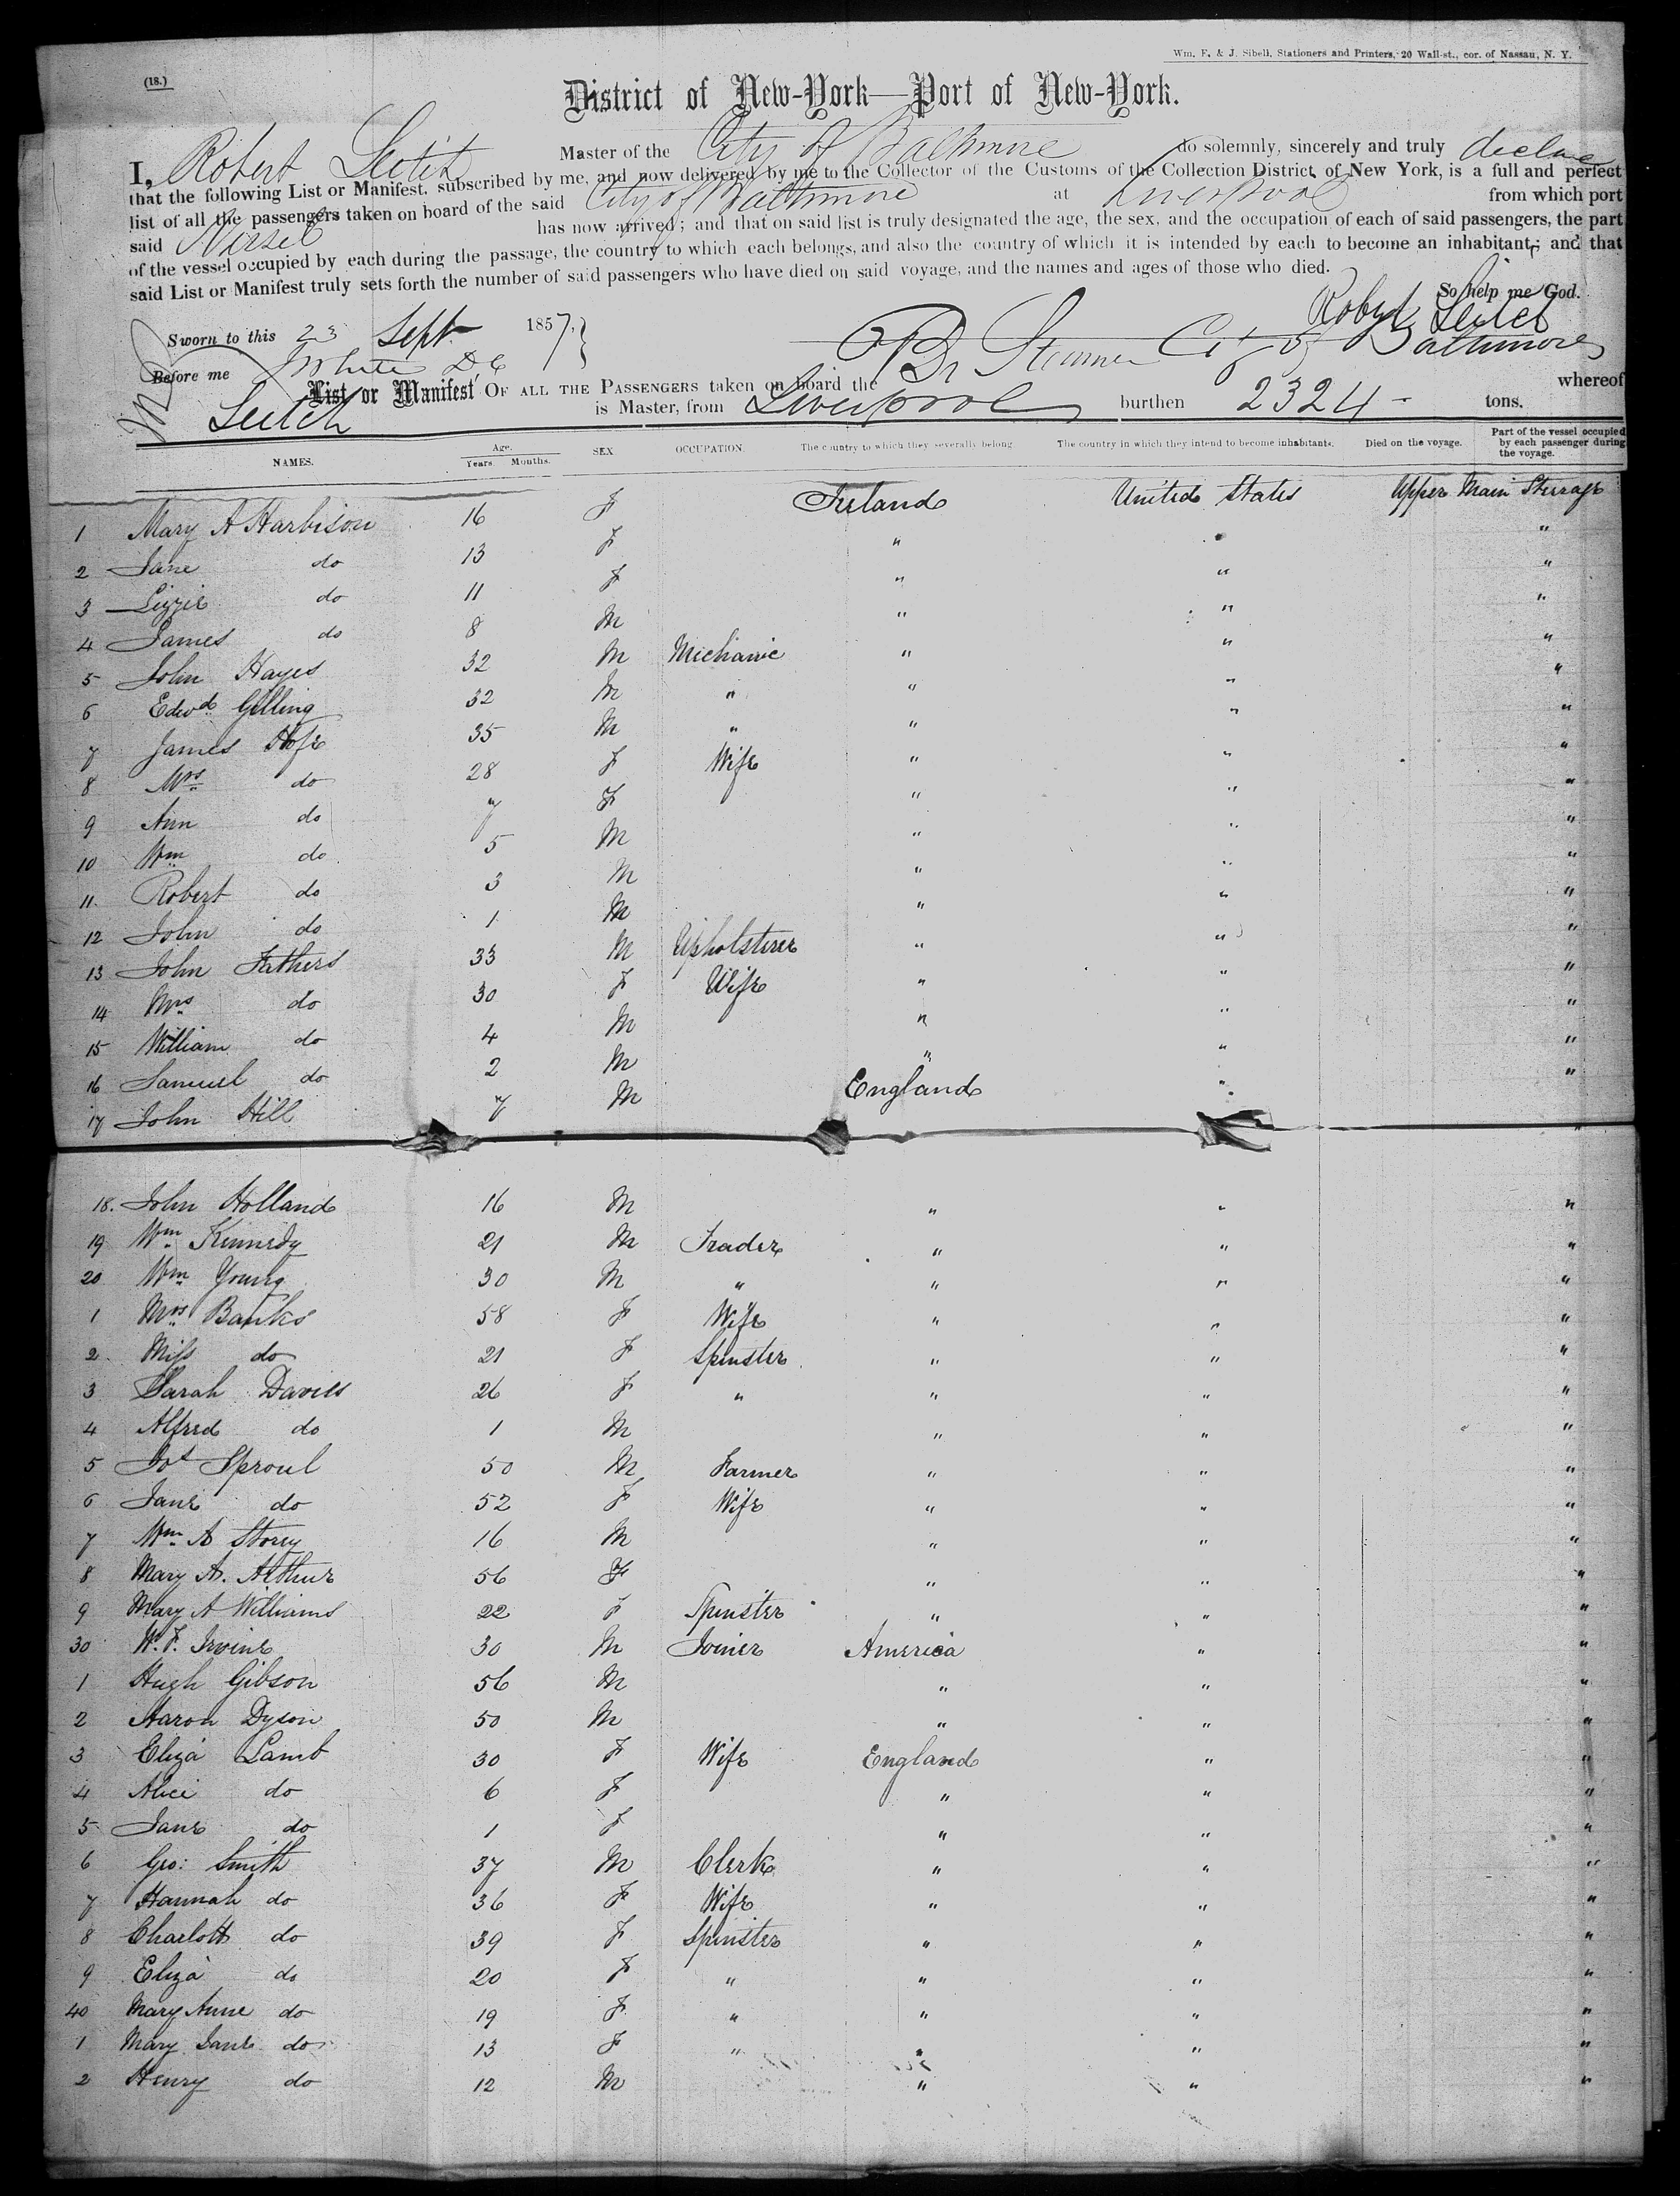 Wm. F. & J. Sibell, Stationers and Printers, 20 Wall-st., cor. of Nassau, N. Y.
(18.)
District of New-York—Port of New-York.
I, Robert Leitch Master of the City of Baltimore do solemnly, sincerely and truly declare
that the following List or Manifest, subscribed by me, and now delivered by me to the Collector of the Customs of the Collection District of New York, is a full and perfect
list of all the passengers taken on board of the said City of Baltimore at Liverpool from which port
said Vessel has now arrived; and that on said list is truly designated the age, the sex, and the occupation of each of said passengers, the part
of the vessel occupied by each during the passage, the country to which each belongs, and also the country of which it is intended by each to become an inhabitant; and that
said List or Manifest truly sets forth the number of said passengers who have died on said voyage, and the names and ages of those who died.
So help me God.
Robert Leitch
Sworn to this 23 Sept 1857,
Before me White D C
Br Steamer City of Baltimore
List or Manifest OF ALL THE PASSENGERS taken on board the whereof
Leitch is Master, from Liverpool burthen 2324 - tons.
NAMES. Age. Years Months. SEX OCCUPATION The country to which they severally belong. The country in which they intend to become inhabitants. Died on the voyage. Part of the vessel occupied by each passenger during the voyage.
1 Mary A Harbison 16 F Ireland United States Upper Main Steerage
2 Jane do 13 F " " "
3 Lizzie do 11 F " " "
4 James do 8 M " " "
5 John Hayes 32 M Mechanic " " "
6 Edwd Gelling 32 M " " " "
7 James Hofe 35 M " " " "
8 Mrs do 28 F Wife " " "
9 Ann do 7 F " " "
10 Wm do 5 M " " "
11 Robert do 3 M " " "
12 John do 1 M " " "
13 John Fathers 33 M Upholsterer " " "
14 Mrs do 30 F Wife " " "
15 William do 4 M " " "
16 Samuel do 2 M " " "
17 John Hill 7 M England " "
18. John Holland 16 M " " "
19 Wm Kennedy 21 M Trader " " "
20 Wm Young 30 M " " " "
1 Mrs Banks 58 F Wife " " "
2 Miss do 21 F Spinster " " "
3 Sarah Davies 26 F " " " "
4 Alfred do 1 M " " "
5 Jos Sproul 50 M Farmer " " "
6 Jane do 52 F Wife " " "
7 Wm A Storey 16 M " " "
8 Mary A. Arthur 56 F " " "
9 Mary A Williams 22 F Spinster " " "
30 W. F. Irvine 30 M Joiner America " "
1 Hugh Gibson 56 M " " "
2 Aaron Dyson 50 M " " "
3 Eliza Lamb 30 F Wife England " "
4 Alice do 6 F " " "
5 Jane do 1 F " " "
6 Geo: Smith 37 M Clerk " " "
7 Hannah do 36 F Wife " " "
8 Charlott do 39 F Spinster " " "
9 Eliza do 20 F " " " "
40 Mary Anne do 19 F " " " "
1 Mary Jane do 13 F " " " "
2 Henry do 12 M " " "